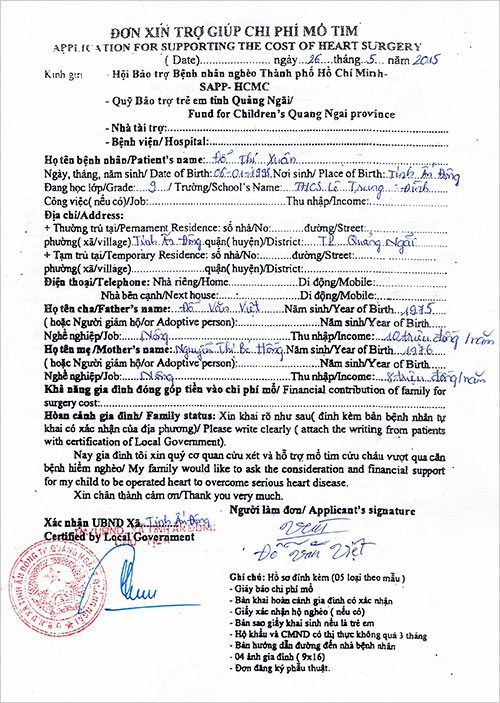 ĐƠN XIN TRỢ GIÚP CHI PHÍ MỔ TIM
APPLICATION FOR SUPPORTING THE COST OF HEART SURGERY
( Date)........................ ngày..26.....tháng..5... năm 2015
Kính gửi: - Hội Bảo trợ Bệnh nhân nghèo Thành phố Hồ Chí Minh-
SAPP- HCMC
- Quỹ Bảo trợ trẻ em tỉnh Quảng Ngãi/
Fund for Children's Quang Ngai province
- Nhà tài trợ:
- Bệnh viện/ Hospital:
Họ tên bệnh nhân/Patient's name: Đỗ Thị Xuân
Ngày, tháng, năm sinh/ Date of Birth: Nơi sinh/ Place of Birth: Tịnh Ấn Đông
Đang học lớp/Grade: 9 / Trường/School's Name: THCS Lê Trung Đình
Công việc( nếu có)/Job: Thu nhập/Income:
Địa chỉ/Address:
+ Thường trú tại/Pernament Residence: số nhà/No: đường/Street:
phường( xã/village) Tịnh Ấn Đông quận( huyện)/District: TP Quảng Ngãi
+ Tạm trú tại/Temporary Residence: số nhà/No: đường/Street:
phường( xã/village) quận( huyện)/District:
Điện thoại/Telephone: Nhà riêng/Home: Di động/Mobile:
Nhà bên cạnh/Next house: Di động/Mobile:
Họ tên cha/Father's name: Đỗ Văn Việt Năm sinh/Year of Birth 1975
( hoặc Người giám hộ/or Adoptive person): Năm sinh/Year of Birth
Nghề nghiệp/Job: Nông Thu nhập/Income: 10 triệu đồng/năm
Họ tên mẹ /Mother's name: Nguyễn Thị Bé Hồng Năm sinh/Year of Birth 1976
( hoặc Người giám hộ/or Adoptive person): Năm sinh/Year of Birth
Nghề nghiệp/Job: Nông Thu nhập/Income: 8 triệu đồng/năm
Khả năng gia đình đóng góp tiền vào chi phí mổ/ Financial contribution of family for
surgery cost:
Hoàn cảnh gia đình/ Family status: Xin khai rõ như sau( đính kèm bản bệnh nhân tự
khai có xác nhận của địa phương)/ Please write clearly ( attach the writing from patients
with certification of Local Government).
Nay gia đình tôi xin quý cơ quan cứu xét và hỗ trợ mổ tim cứu cháu vượt qua căn
bệnh hiểm nghèo/ My family would like to ask the consideration and financial support
for my child to be operated heart to overcome serious heart disease.
Xin chân thành cảm ơn/Thank you very much.
Người làm đơn/ Applicant's signature
Xác nhận UBND Xã Tịnh Ấn Đông
Certified by Local Government
Việt
Đỗ Văn Việt
Ghi chú: Hồ sơ đính kèm (05 loại theo mẫu )
- Giấy báo chi phí mổ
- Bản khai hoàn cảnh gia đình có xác nhận
- Giấy xác nhận hộ nghèo ( nếu có)
- Bản sao giấy khai sinh nếu là trẻ em
- Hộ khẩu và CMND có thị thực không quá 3 tháng
- Bản hướng dẫn đường đến nhà bệnh nhân
- 04 ảnh gia đình ( 9x16)
- Đơn đăng ký phẫu thuật.